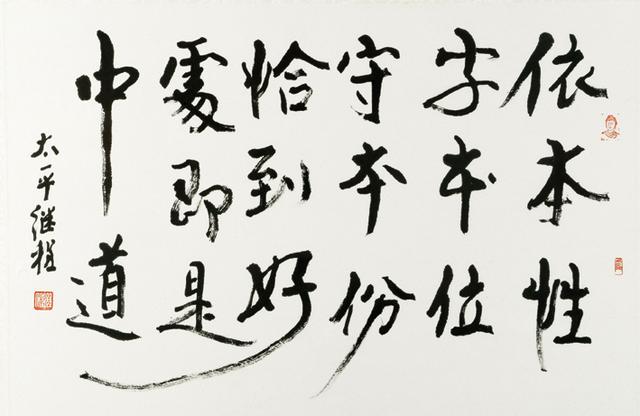 依本性
守本位
守本份
恰到好
處即是
中道
太平继程